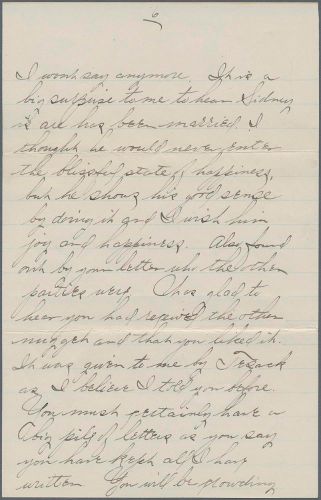 6
I wont say anymore. It is a
big surprise to me to hear Sidney
is are has been married. I
thought he would never enter
the blissful state of happiness,
but he shows his good sense
by doing it and I wish him
joy and happiness. Also found
out by your letter who the other
parties were. I was glad to
hear you had received the other
nugget and that you liked it.
It was given to me by
as I believe I told you before.
You must certainly have a
big pile of letters as you say
you have kept all I have
written. You will be